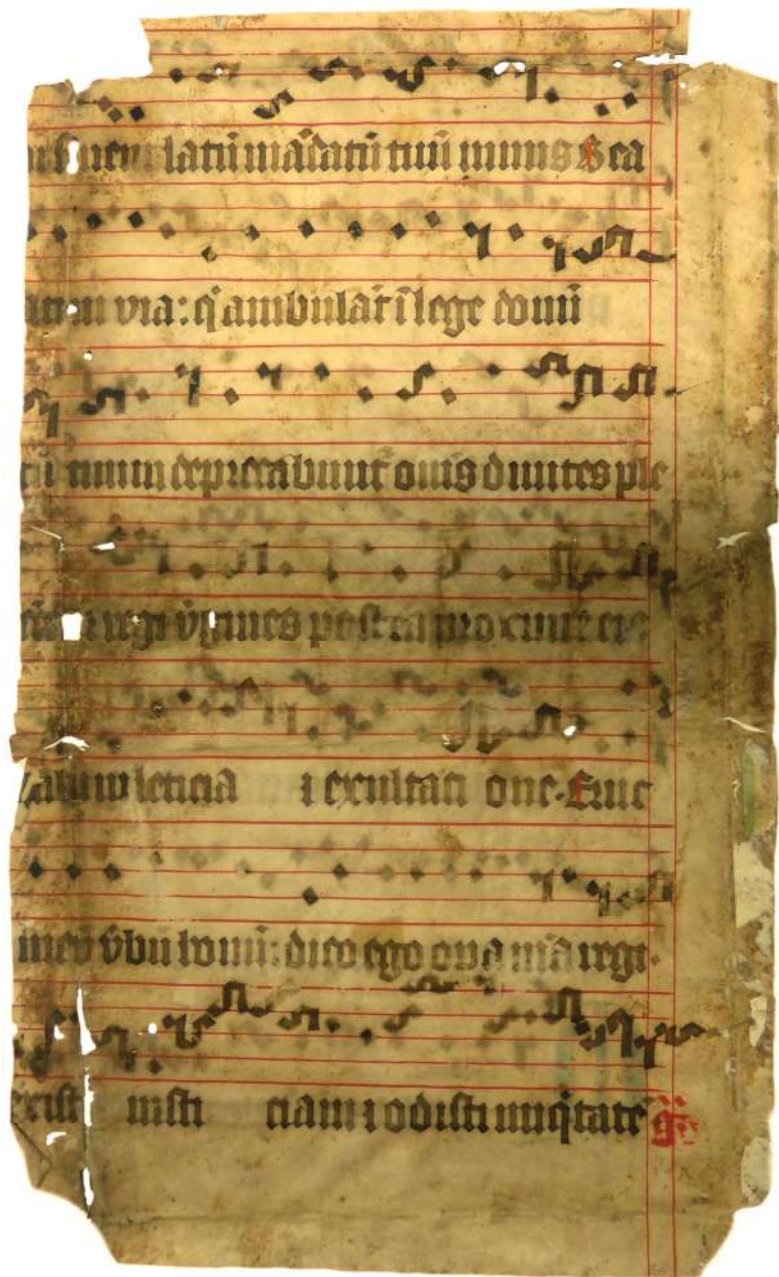 latū mādatū tuū nimis Bea
in via: q̄ ambulāt ī lege domī
tū tuum deprecabunt̄ om̄s divites ple
regi v̓gines post eā proxime ei⁹
leticia ⁊ exultati one. Eruc
meū v̓bū bonū: dico ego opa m̄a regi.
iusti ciam ⁊ odisti iniq̄tatē